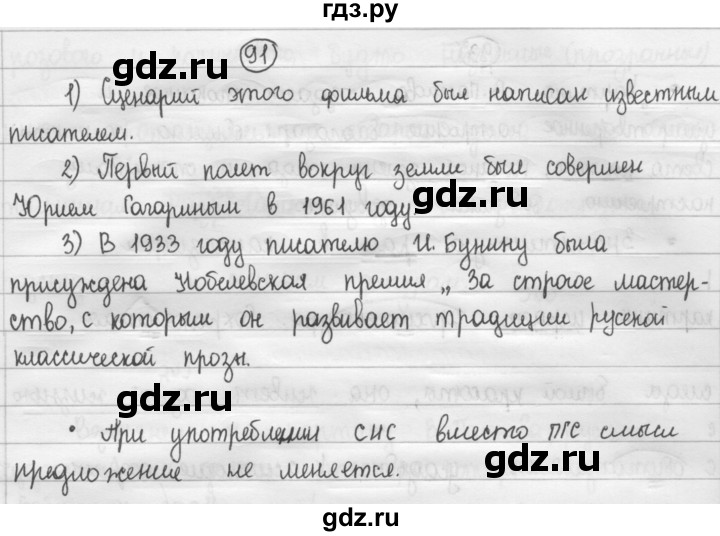 гдз.ру
91
gdz.ru
gdz.ru
1) Сценарий этого фильма был написан известным
писателем.
2) Первый полет вокруг земли был совершен
gdz.ru
Юрием Гагариным в 1961 году
3) В 1933 году писателю И. Бунину была
присуждена Нобелевская премия „ За строгое мастер-
gdz.ru
ство, с которым он развивает традиции русской
классической прозы.
gdz.ru
• При употреблении СИС вместо ПГС смысл
gdz.ru
предложение не меняется.
gdz.ru